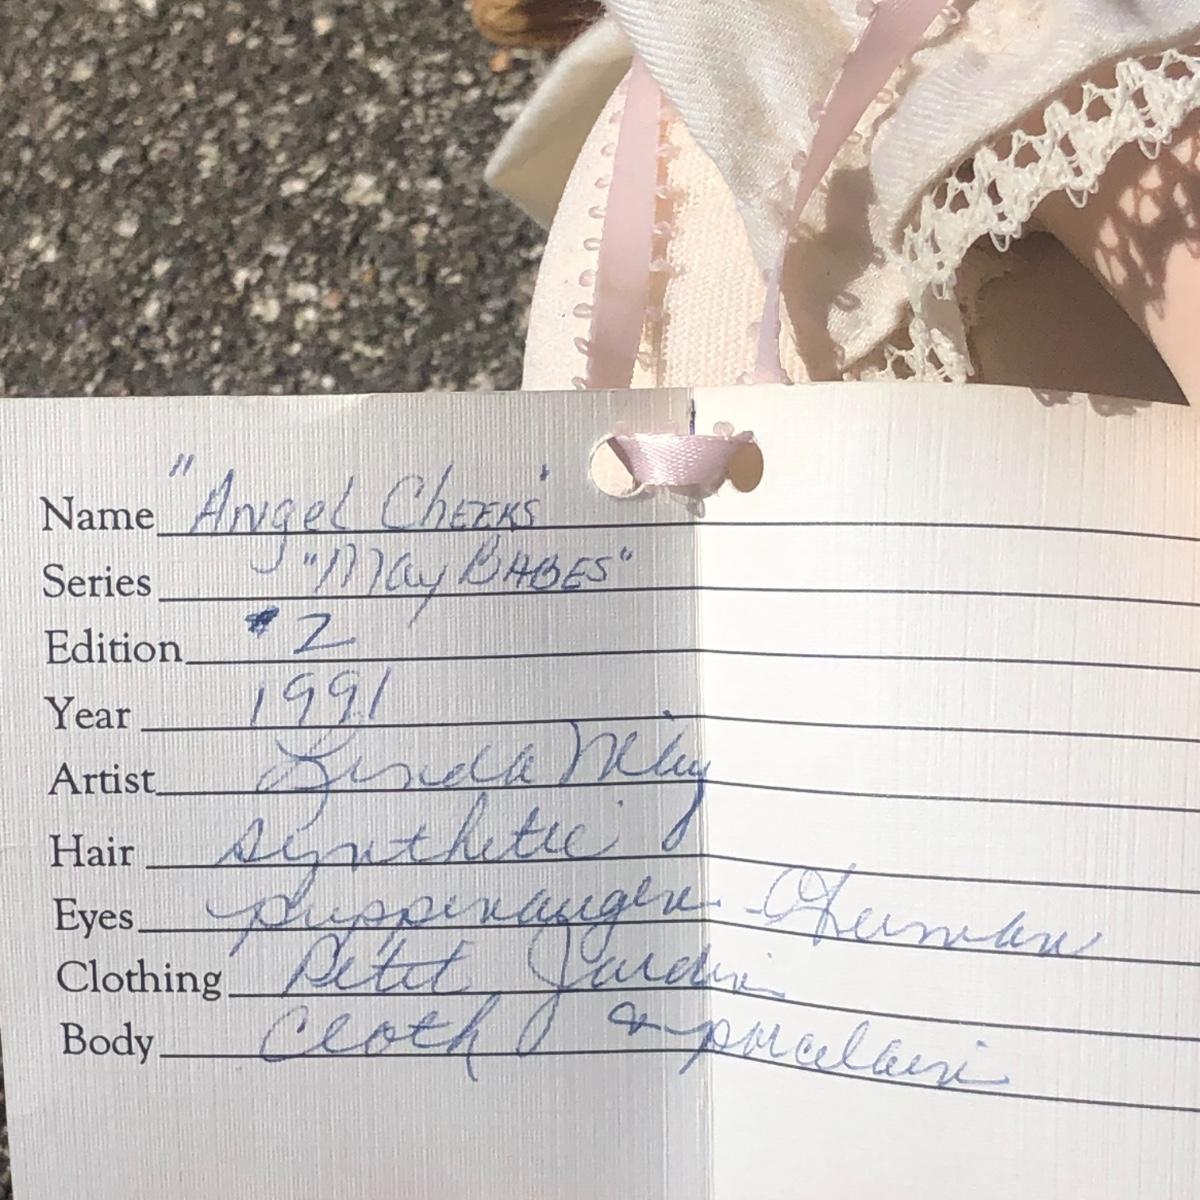 Name "Angel Cheeks"
Series "May Babes"
Edition #2
Year 1991
Artist Linda
Hair synthetic
Eyes
Clothing Petit Jardin
Body Cloth & porcelain